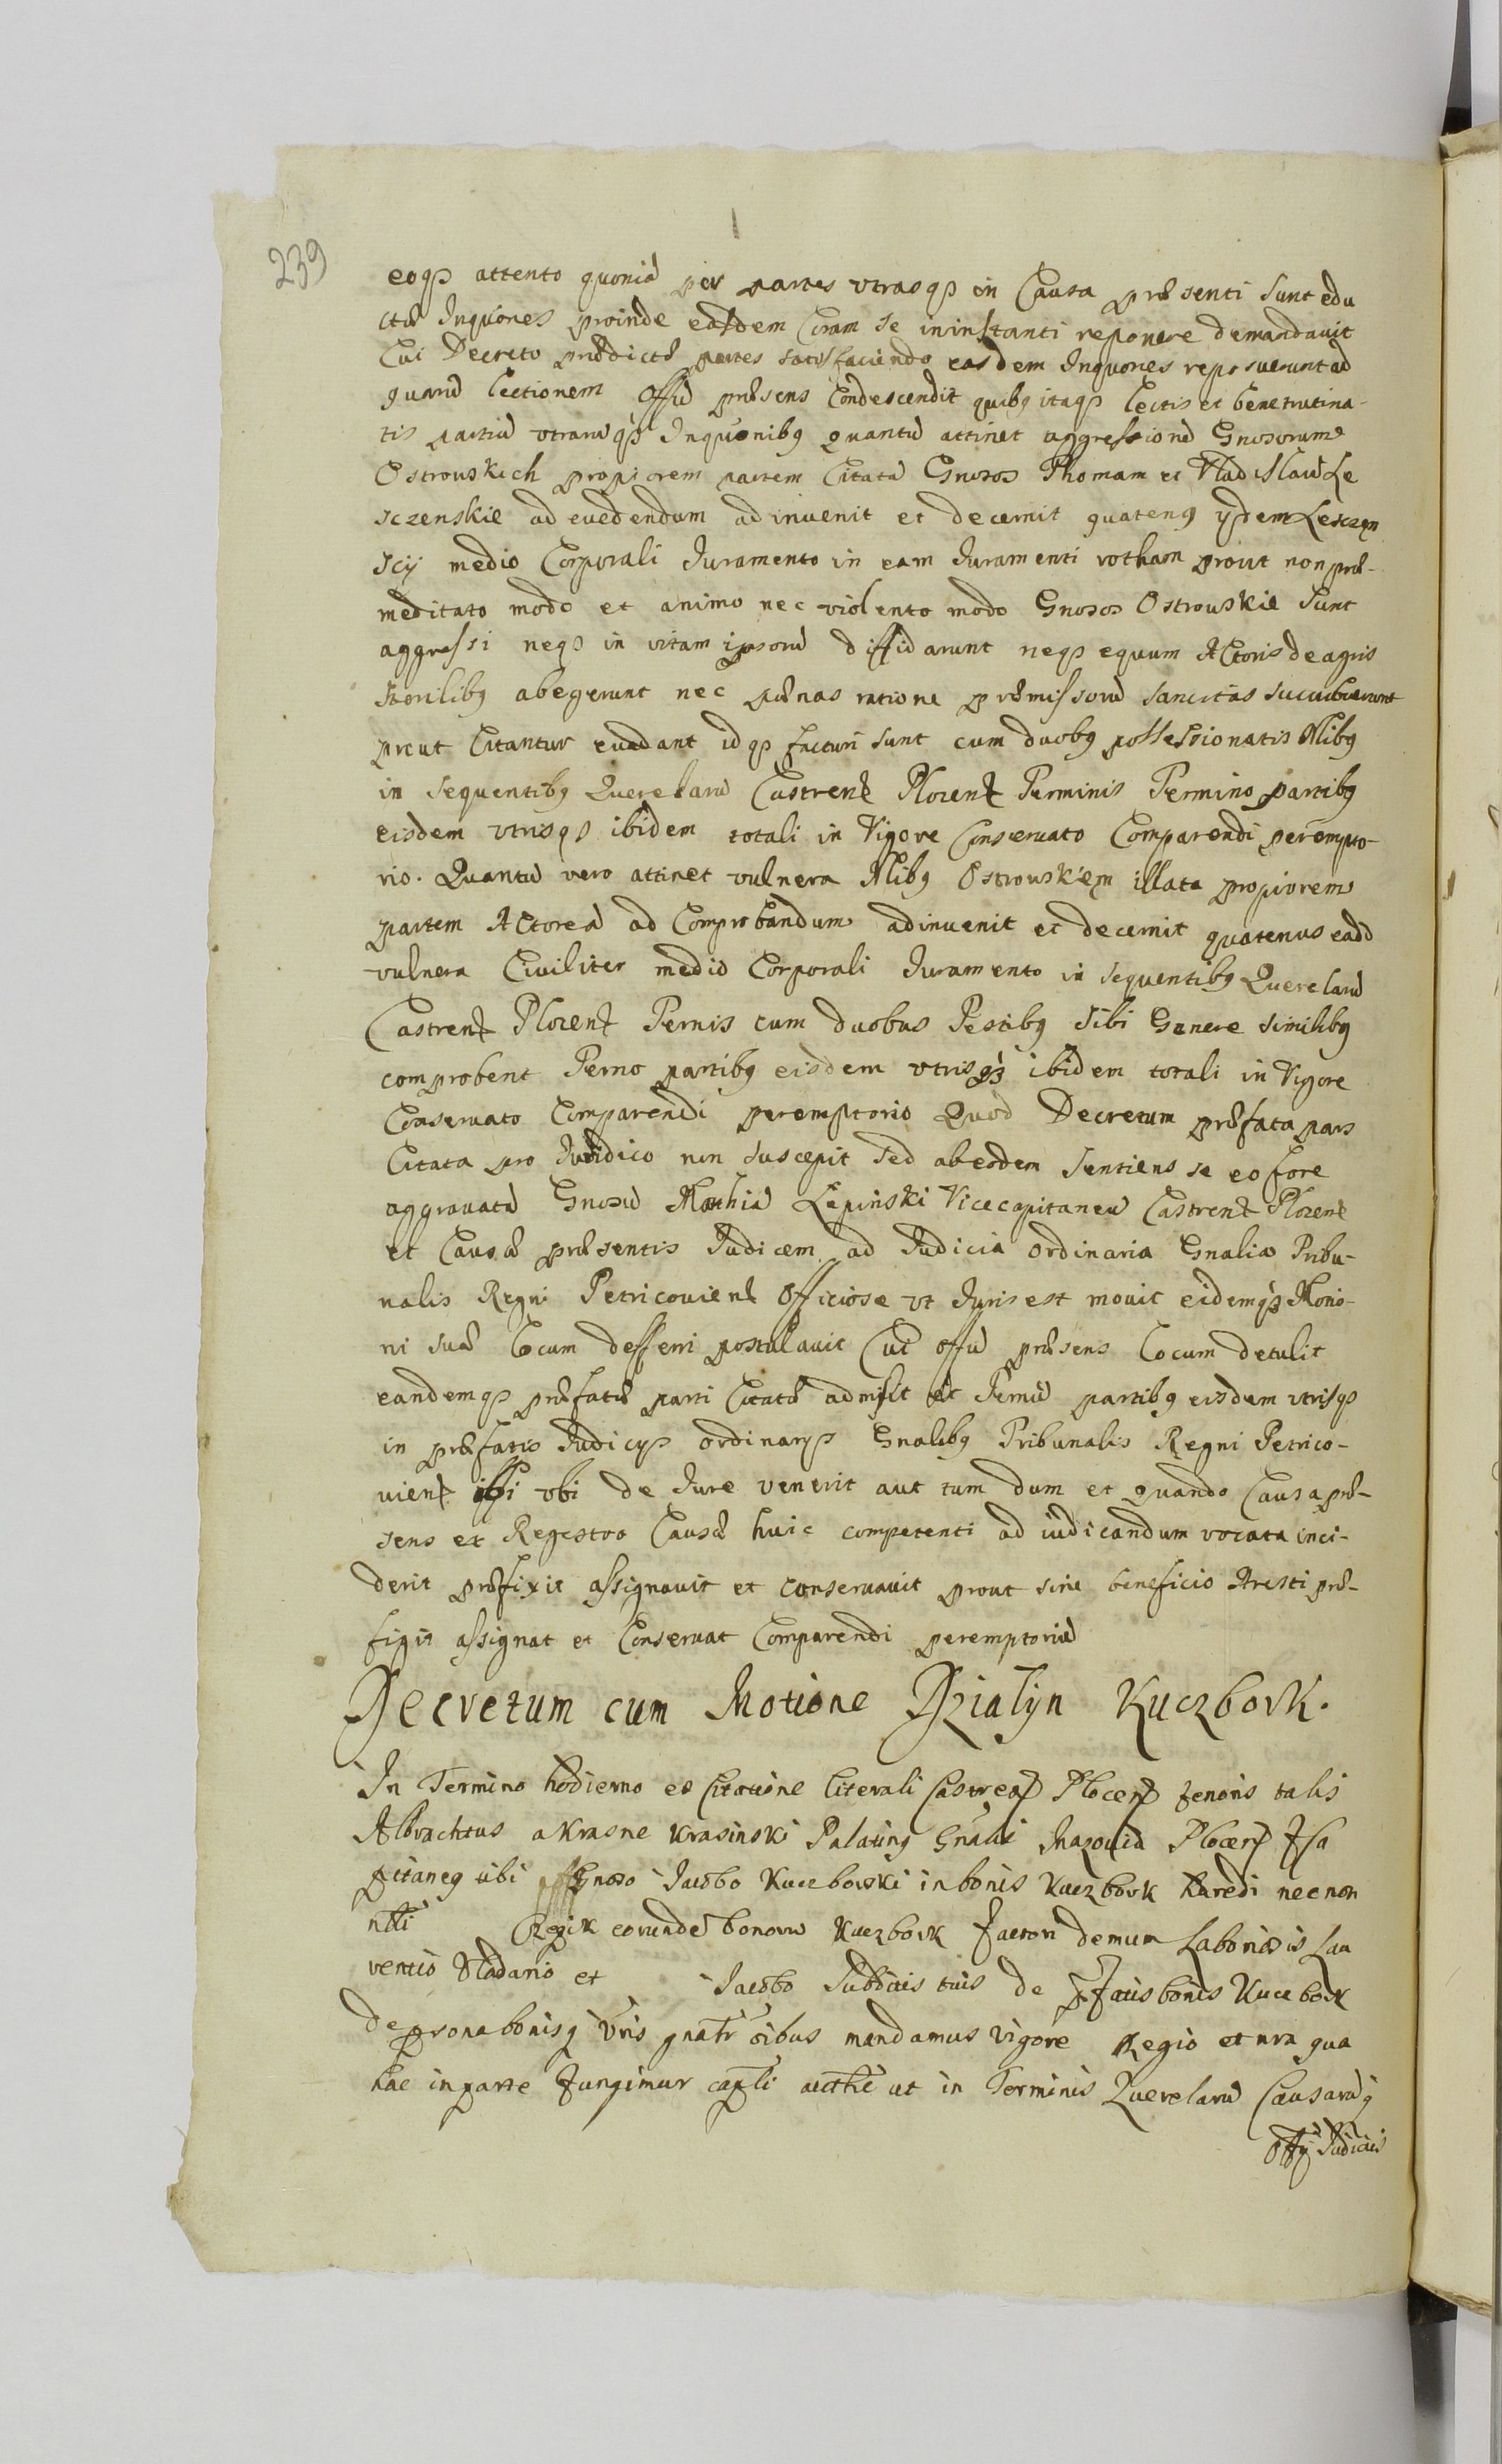 239
eoqɜ attento quoniā per partes vtrasqɜ in Causa præsenti sunt edu
ctæ Inqũones proinde easdem Coram se in instanti reponere demandavit
Cui Decreto prædictæ partes satisfaciendo easdem Inquones reposuerunt ad
quarū lectionem Offū præsens Condescendit quibꝯ itaqɜ lectis et bene trutina-
tis partiū vtrarūqɜ Inquonibꝯ quantū attinet aggressionē Gnosorum
Ostrouskich propiorem partem Citatā Gnosos Thomam et Vladislaū Le
sczenskie ad evadendum adinvenit et decernit quatenꝯ ijdem Lesczyn
scij medio Corporali Juramento in eam Juramenti rotham prout non præ-
meditato modo et animo nec violento modo Gnosos Ostrouskie sunt
aggressi neqɜ in vitam ipsorū diffidarunt neqɜ equum Actoris de agris
sterilibꝯ abegerunt nec pænas ratione præmissorū sancitas succubuerunt
prout Citantur evadant idqɜ facturi sunt cum duobꝯ possessionatis Nlibꝯ
in sequentibꝯ Querelarū Castrenꝭ Plocenꝭ Terminis Termino partibꝯ
eisdem vtrisqɜ ibidem totali in Vigore Conservato Comparendi perempto-
rio. Quantū vero attinet vulnera Nlibꝯ Ostrouskiem illata propiorem
partem Actoreā ad Comprobandum adinvenit et decernit quatenus eadē
vulnera Civiliter medio Corporali Juramento in sequentibꝯ Querelarū
Castrenꝭ Plocenꝭ Ternis cum duobus Testibꝯ sibi Genere similibꝯ
comprobent Terno partibꝯ eisdem vtrisqɜ ibidem totali in Vigore
Conservato Comparendi peremptorio Quod Decretum præfata pars
Citata pro Iuridico non suscepit sed ab eodem sentiens se eo fore
aggravatā Gnosū Mathiā Lepinski Vicecapitaneū Castrenꝭ Plocenꝭ
et Causæ præsentis Judicem ad Judicia ordinaria Gnalia Tribu-
nalis Regni Petricovienꝭ Officiose vt Juris est movit eidemqɜ Motio-
ni suæ Locum defferri postulavit Cui offū præsens Locum detulit
eandemqɜ præfatæ parti Citatæ admisit et Ternū partibꝯ eisdem vtrisqɜ
in præfatis Judicijs ordinarijs Gnalibꝯ Tribunalis Regni Petrico-
vienꝭ ibi vbi de Jure venerit aut tum dum et quando Causa præ-
sens ex Regestro Causæ huic competenti ad iudicandum vocata inci-
derit præfixit assignavit et conservavit prout sine beneficio Aresti præ-
figit assignat et Conservat Comparendi peremptoriū
Decretum cum Motione Dzialyn Kuczbork.
In Termino hodierno ex Citatione Literali Castrenꝭ Plocenꝭ tenoris talis
Albrachtus a Krasne Krasinski Palatinꝯ Gnalis Mazoviæ Plocenꝭ Isa
pitaneꝯ tibi Gnoso Jacobo Kuczborski in bonis Kuczbork hæredi nec non
nbli Regik eorunde bonorū Kuczbork factori demum Laboriosis Lau
rentio Vladario et Jacobo Subditis tuis de pfatis bonis Kuczbork
de prona bonisqɜ vris gnalr oibus mandamus vigore Regio et nra qua
hac in parte fungimur capli aucthe ut in Terminis Querelarū Causarūqɜ
Offij Judicii